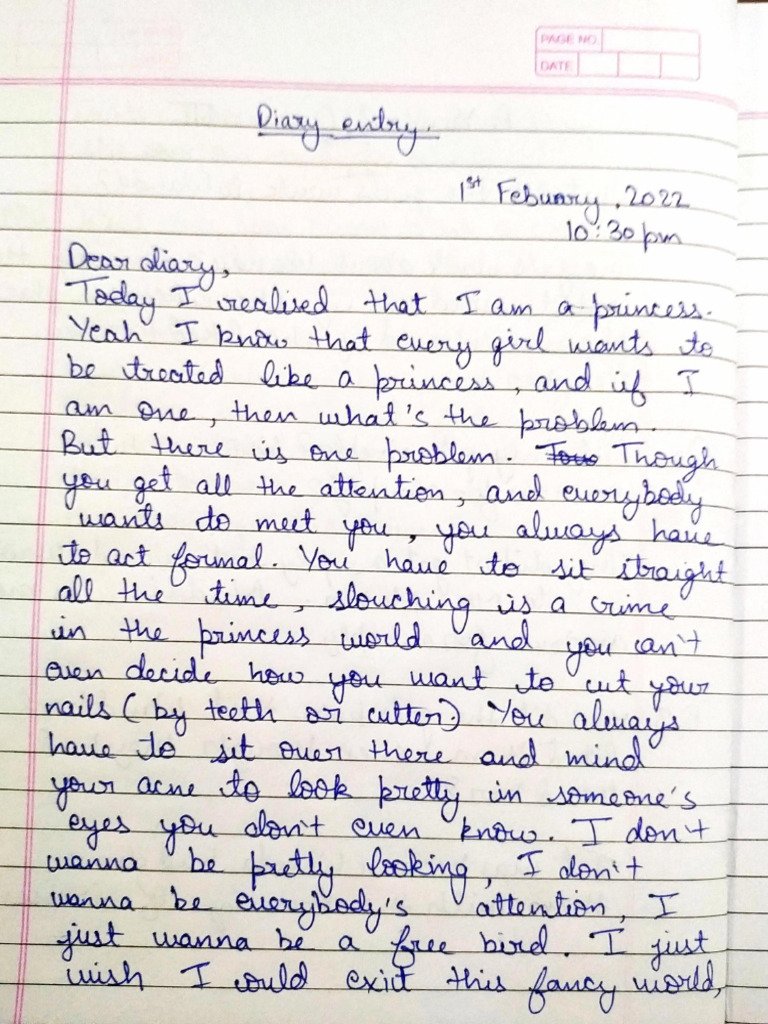 PAGE NO.
DATE
Diary entry.
1st Febuary, 2022
10:30 pm
Dear diary,
Today I realised that I am a princess.
Yeah I know that every girl wants to
be treated like a princess, and if I
am one, then what's the problem.
But there is one problem. Though
you get all the attention, and everybody
wants to meet you, you always have
to act formal. You have to sit straight
all the time, slouching is a crime
in the princess world and you can't
even decide how you want to cut your
nails (by teeth or cutter.) You always
have to sit over there and mind
your acne to look pretty in someone's
eyes you don't even know. I don't
wanna be pretty looking, I don't
wanna be everybody's attention, I
just wanna be a free bird. I just
wish I could exist this fancy world,